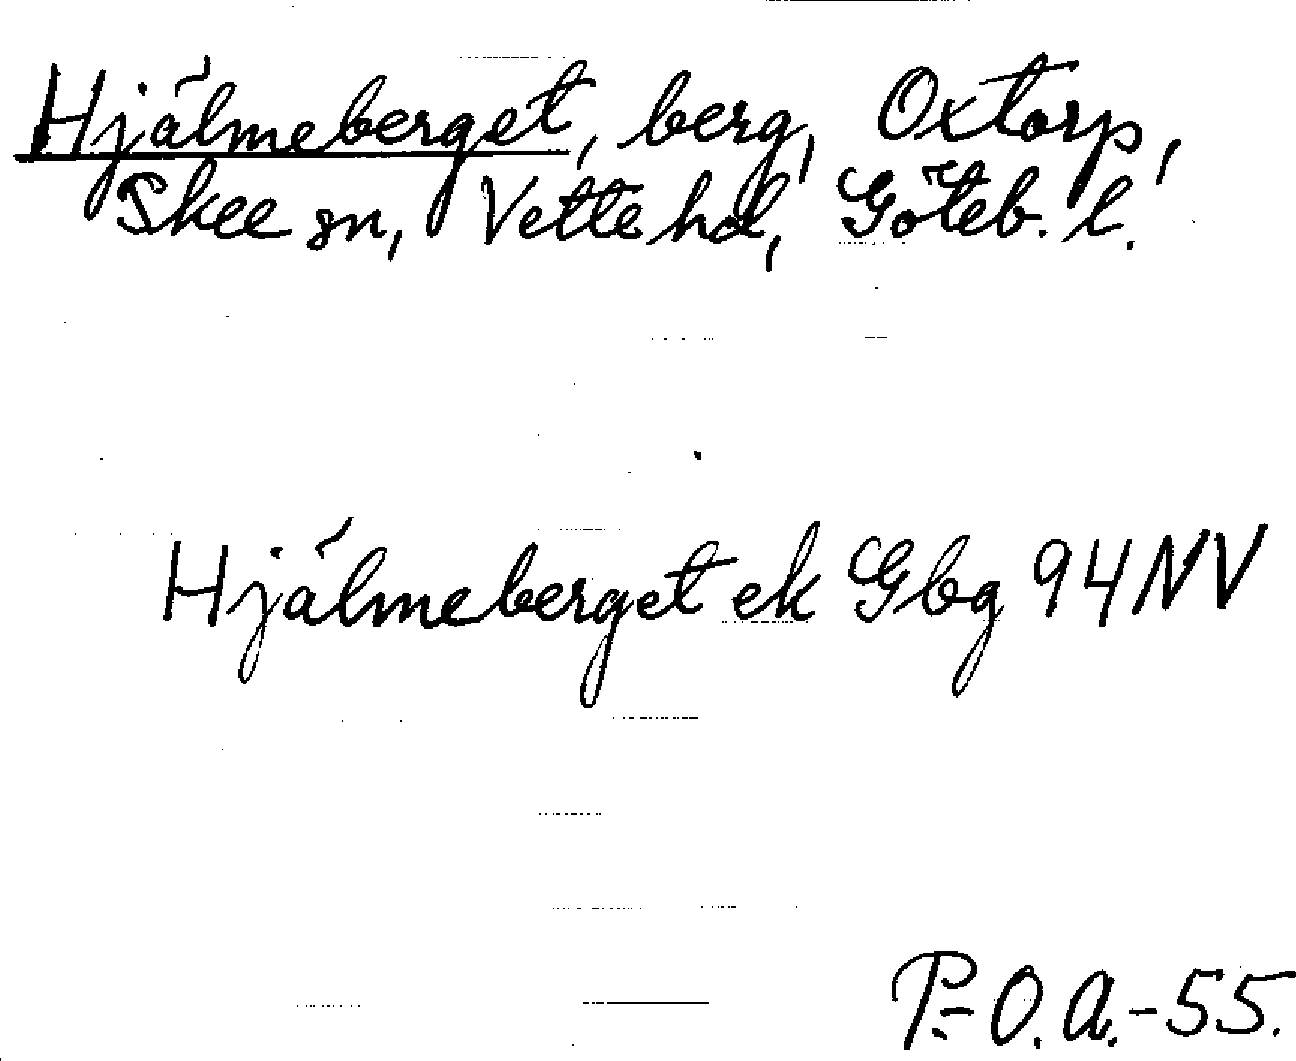 Hjälmeberget, berg, Oxtorp,
Skee sn, Vette hd, Göteb. l.
Hjälmeberget ek Gbg 94 NV
P.-O. A.-55.